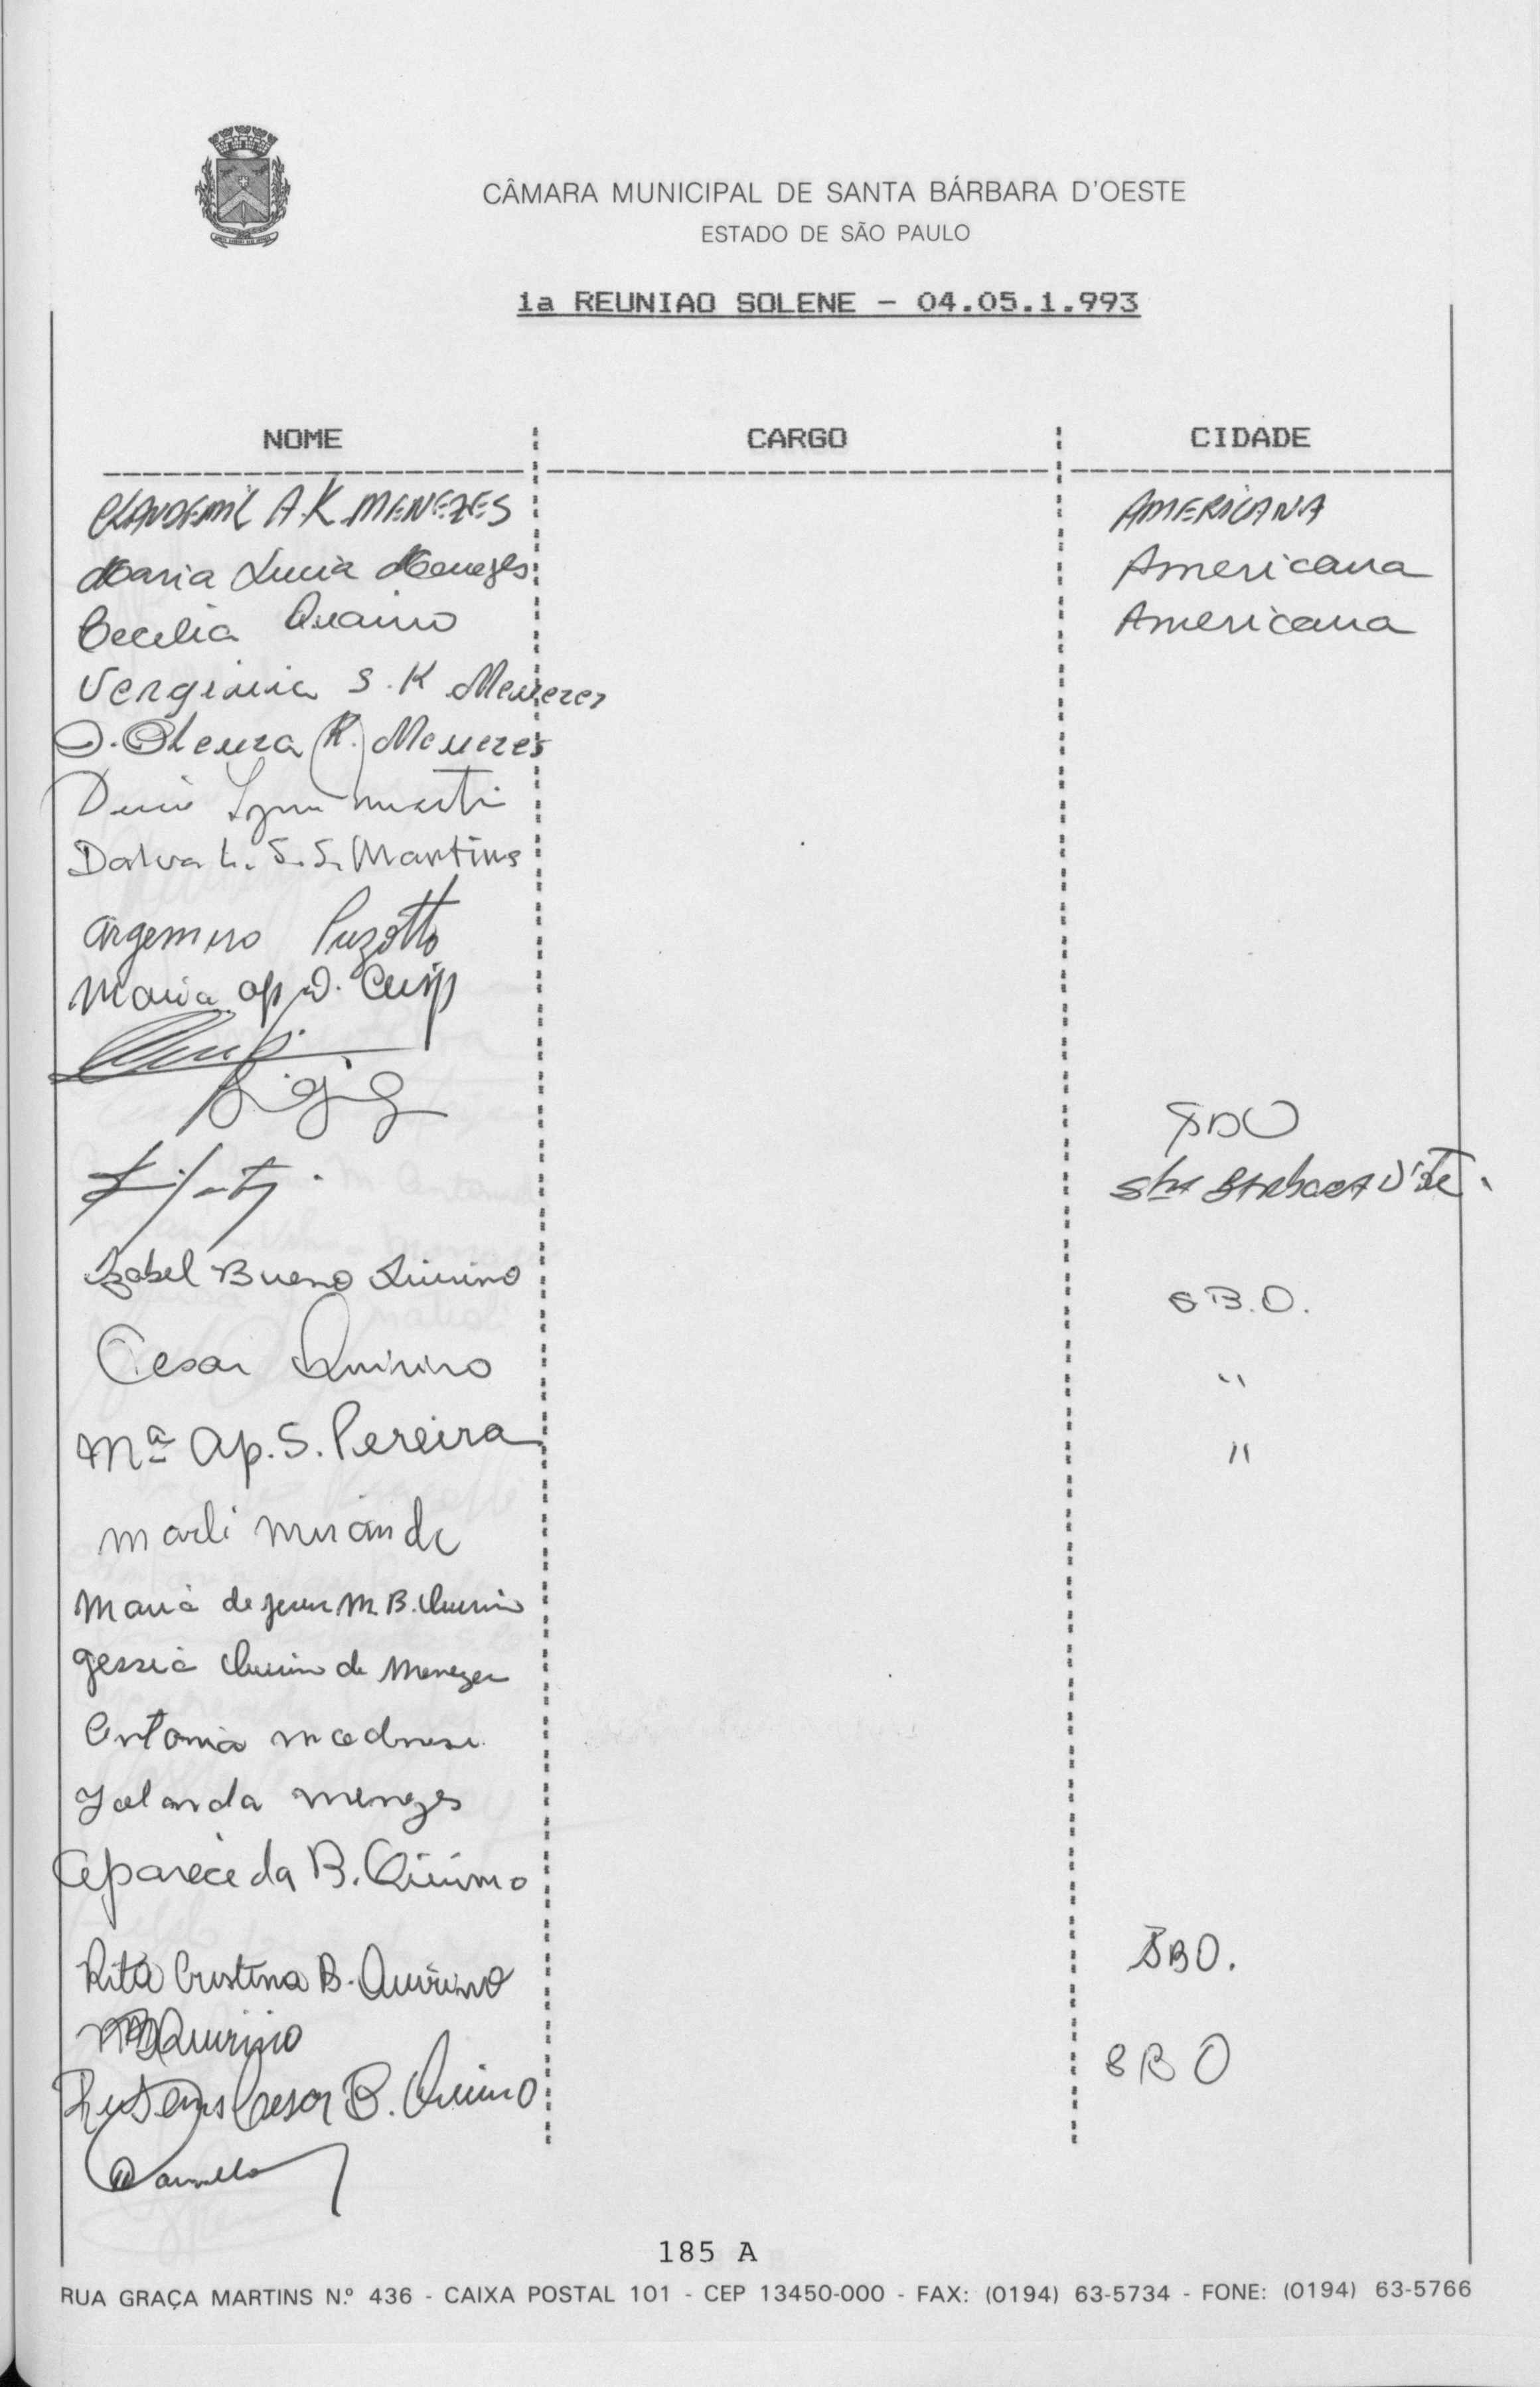 CÂMARA MUNICIPAL DE SANTA BÁRBARA D'OESTE
ESTADO DE SÃO PAULO
1a REUNIAO SOLENE - 04.05.1.993
NOME CARGO CIDADE
CLAUDEMIL A.K. MENEZES AMERICANA
Maria Lucia Menezes Americana
Cecilia Americana
Verginia S. K Menezes
Menezes
Dalva L. S. S. Martins
Argemiro Puzotto
Maria Ap.
Sta Barbara D'Oeste
Izabel Bueno Quirino S.B.O.
Cesar Quirino "
Mª Ap. S. Pereira "
Marli Miranda
Maria de Jesus M. B. Quirino
Gessia Quirino de Menezes
Antonia
Yolanda Menezes
Aparecida B. Quirino
Rita Cristina B. Quirino SBO.
Quirino
Rubens Cesar B. Quirino SBO
185 A
RUA GRAÇA MARTINS N.º 436 - CAIXA POSTAL 101 - CEP 13450-000 - FAX: (0194) 63-5734 - FONE: (0194) 63-5766